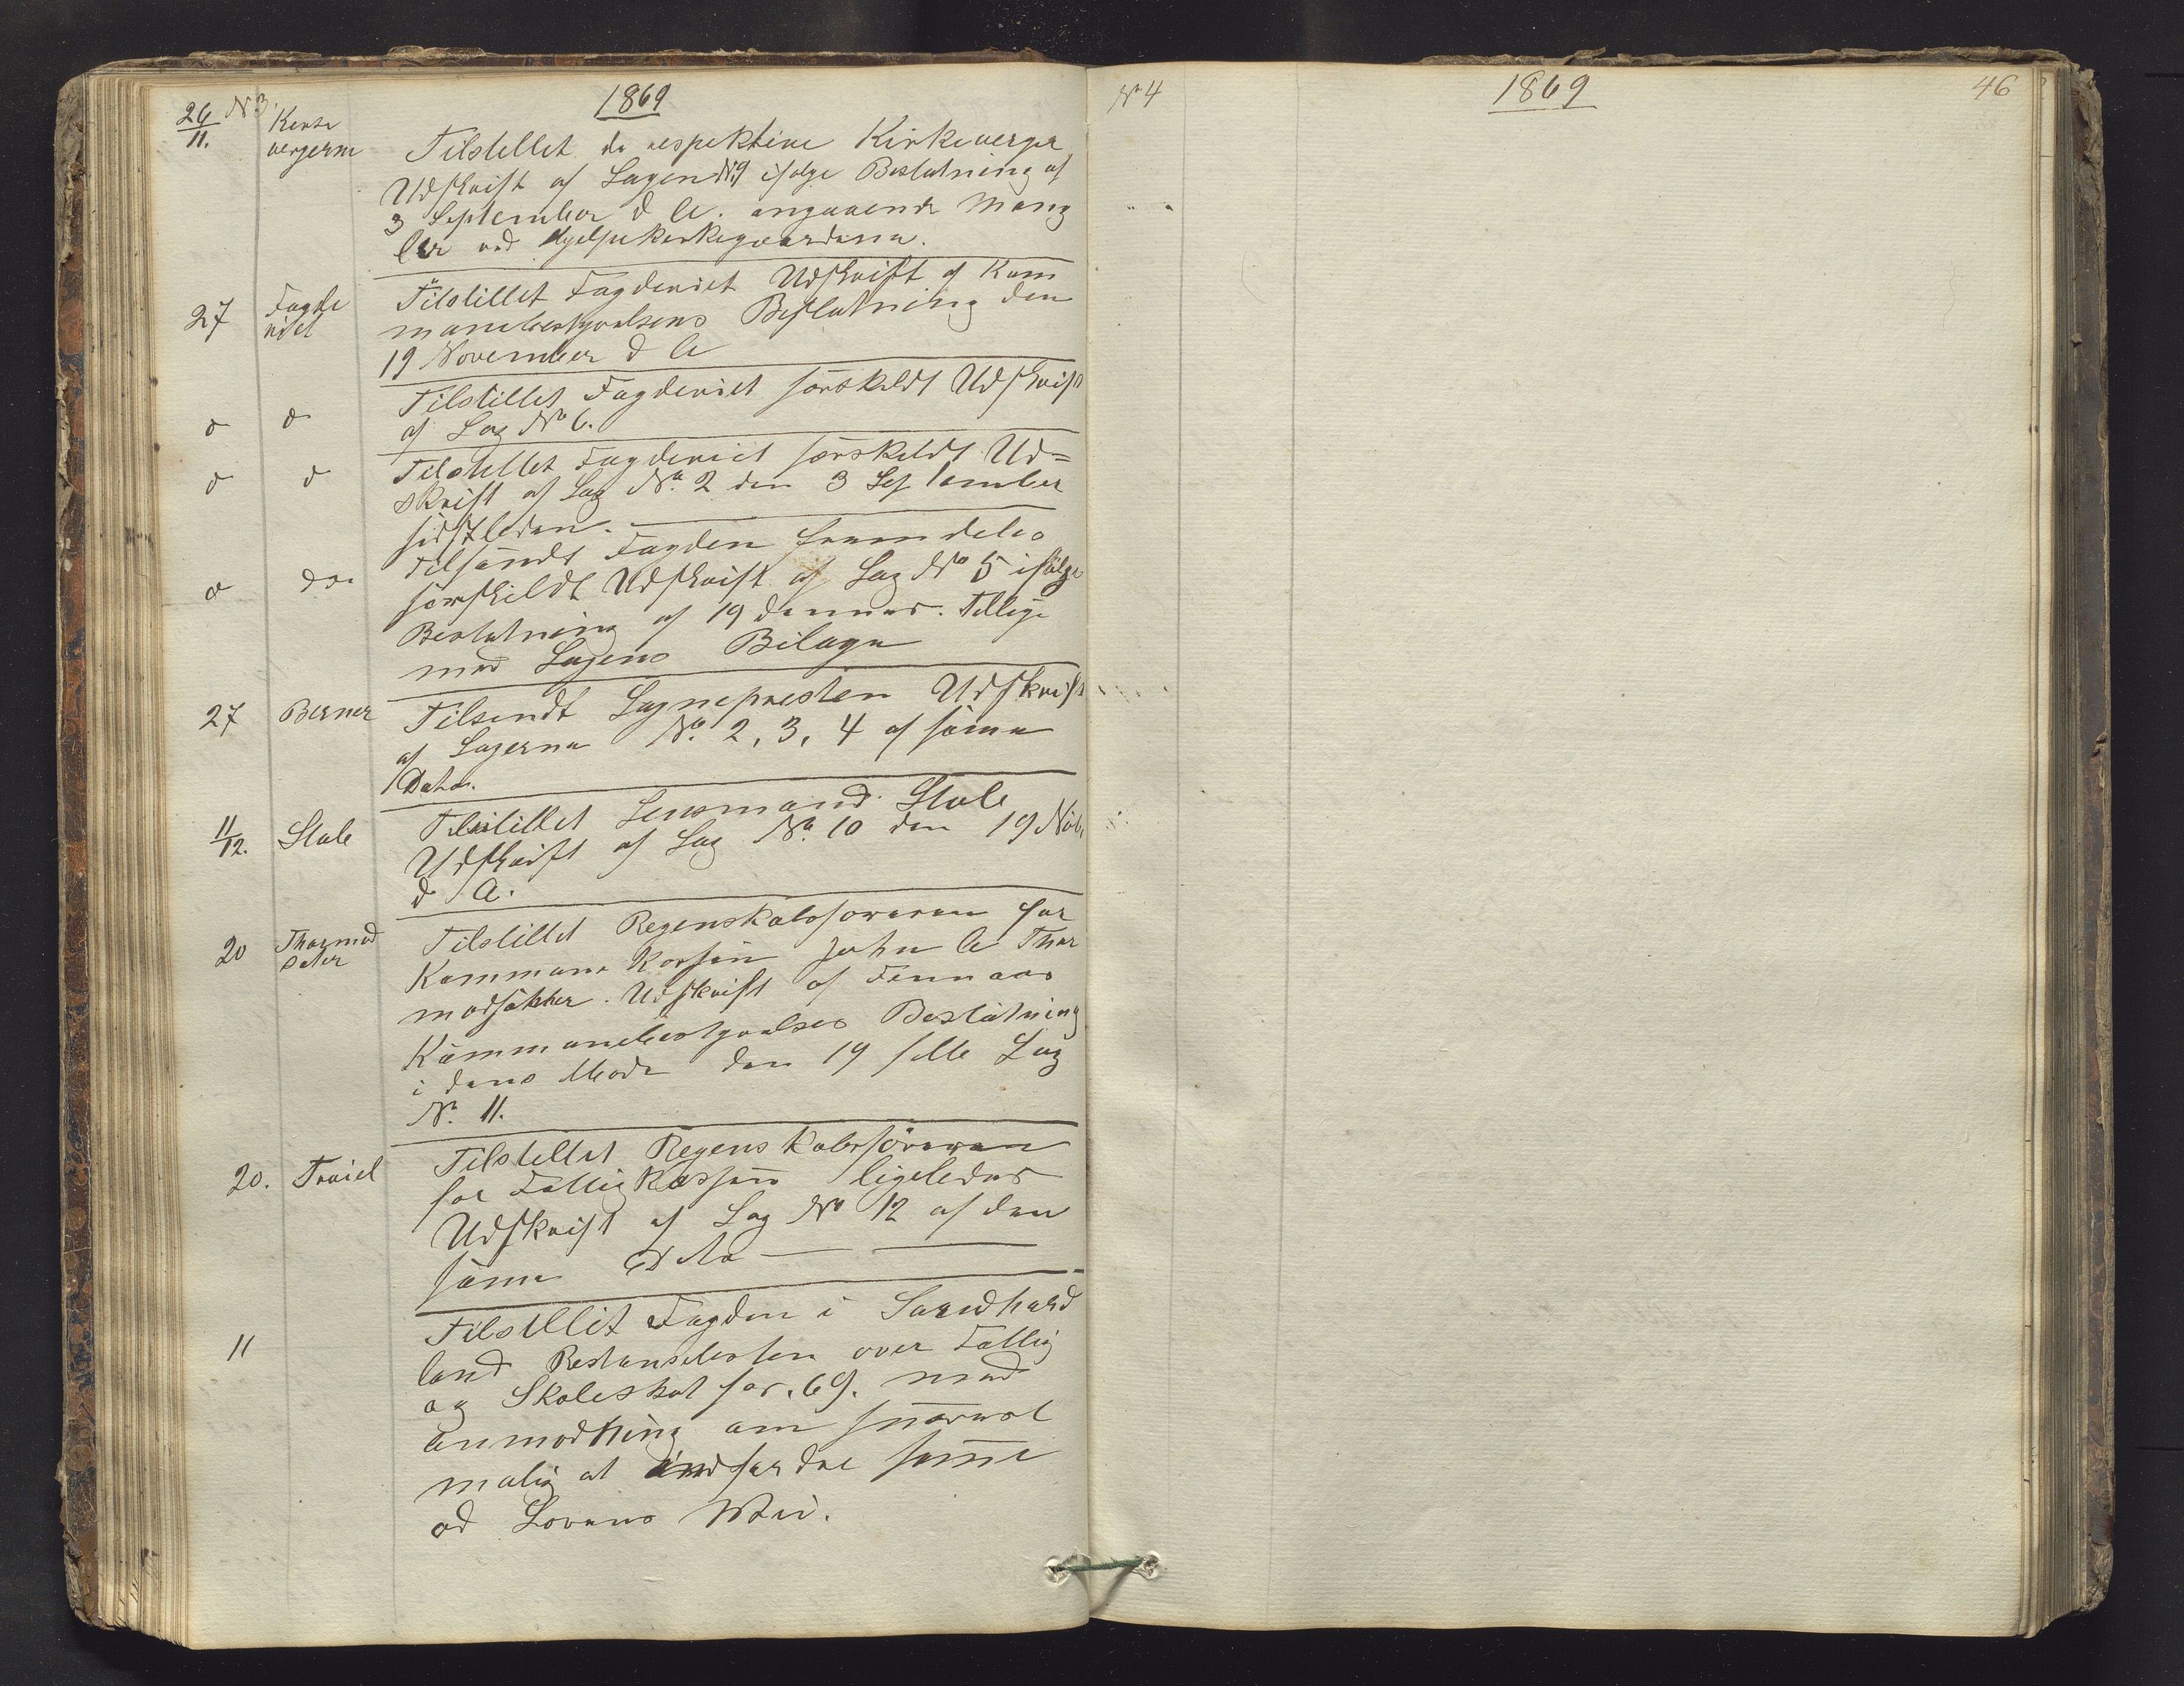 1869
26/11. N 3. Kerke
vergerne
Tilstellet de respektive Kirkeverger
Udskrift af Sagen N 9 ifølge Beslutning af
3 September d A. angaaende Mang
ler ved Hjelpekirkegaardene.
27 Fogde
riet
Tilstillet Fogderiet Udskrift af Kom
munebestyrelsens Beslutning den
19 November d A
d d
Tilstillet Fogderiet særskeldt Udskrift
af Sag No 6.
d d
Tilstillet Fogderiet særskeldt Ud=
skrift af Sag No. 2 den 3 September
sidstleden.
d do
Tilsendt Fogden fremdeles
særskildt Udskrift af Sag No 5 ifølge
Beslutning af 19 dennes. Tillige
med Sagens Bilage
27 Berner
Tilsendt Sognepresten Udskrift
af Sagerne No. 2, 3, 4 af samme
Dato.
11/12. Stole
Tilstillet Lensmand Stole
Udskrift af Sag No. 10 den 19 Nobr
d A.
20 Thormod
sæter
Tilstillet Regenskabsføreren for
Kommune Kassen John A Thor
modsæther. Udskrift af Fennaas
Kommunebestyrelses Beslutning
i dens Møde den 19 f Mts Sag
No. 11.
20. Traiel
Tilstillet Regenskabsføreren
for Fattigkassen ligeledes
Udskrift af Sag No 12 af den
samme Dato
11
Tilstillet Fogden i Søndhord
land Restanselisten over Fattig
og Skoleskat for. 69. med
anmodning om snarest
mulig at inndfordre samme
ad Lovens Vei.
No 4
1869
46